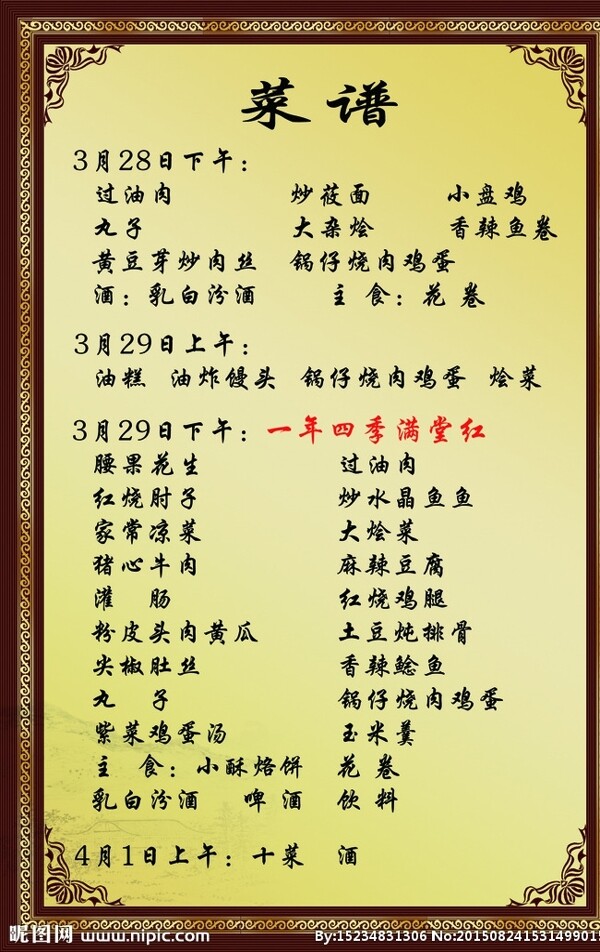 菜谱
3月28日下午：
过油肉 炒莜面 小盘鸡
丸子 大杂烩 香辣鱼卷
黄豆芽炒肉丝 锅仔烧肉鸡蛋
酒：乳白汾酒 主食：花卷
3月29日上午：
油糕 油炸馒头 锅仔烧肉鸡蛋 烩菜
3月29日下午：一年四季满堂红
腰果花生 过油肉
红烧肘子 炒水晶鱼鱼
家常凉菜 大烩菜
猪心牛肉 麻辣豆腐
灌肠 红烧鸡腿
粉皮头肉黄瓜 土豆炖排骨
尖椒肚丝 香辣鲶鱼
丸子 锅仔烧肉鸡蛋
紫菜鸡蛋汤 玉米羹
主食：小酥烙饼 花卷
乳白汾酒 啤酒 饮料
4月1日上午：十菜 酒
昵图网 www.nipic.com By:15234831306 No:20150824153149901